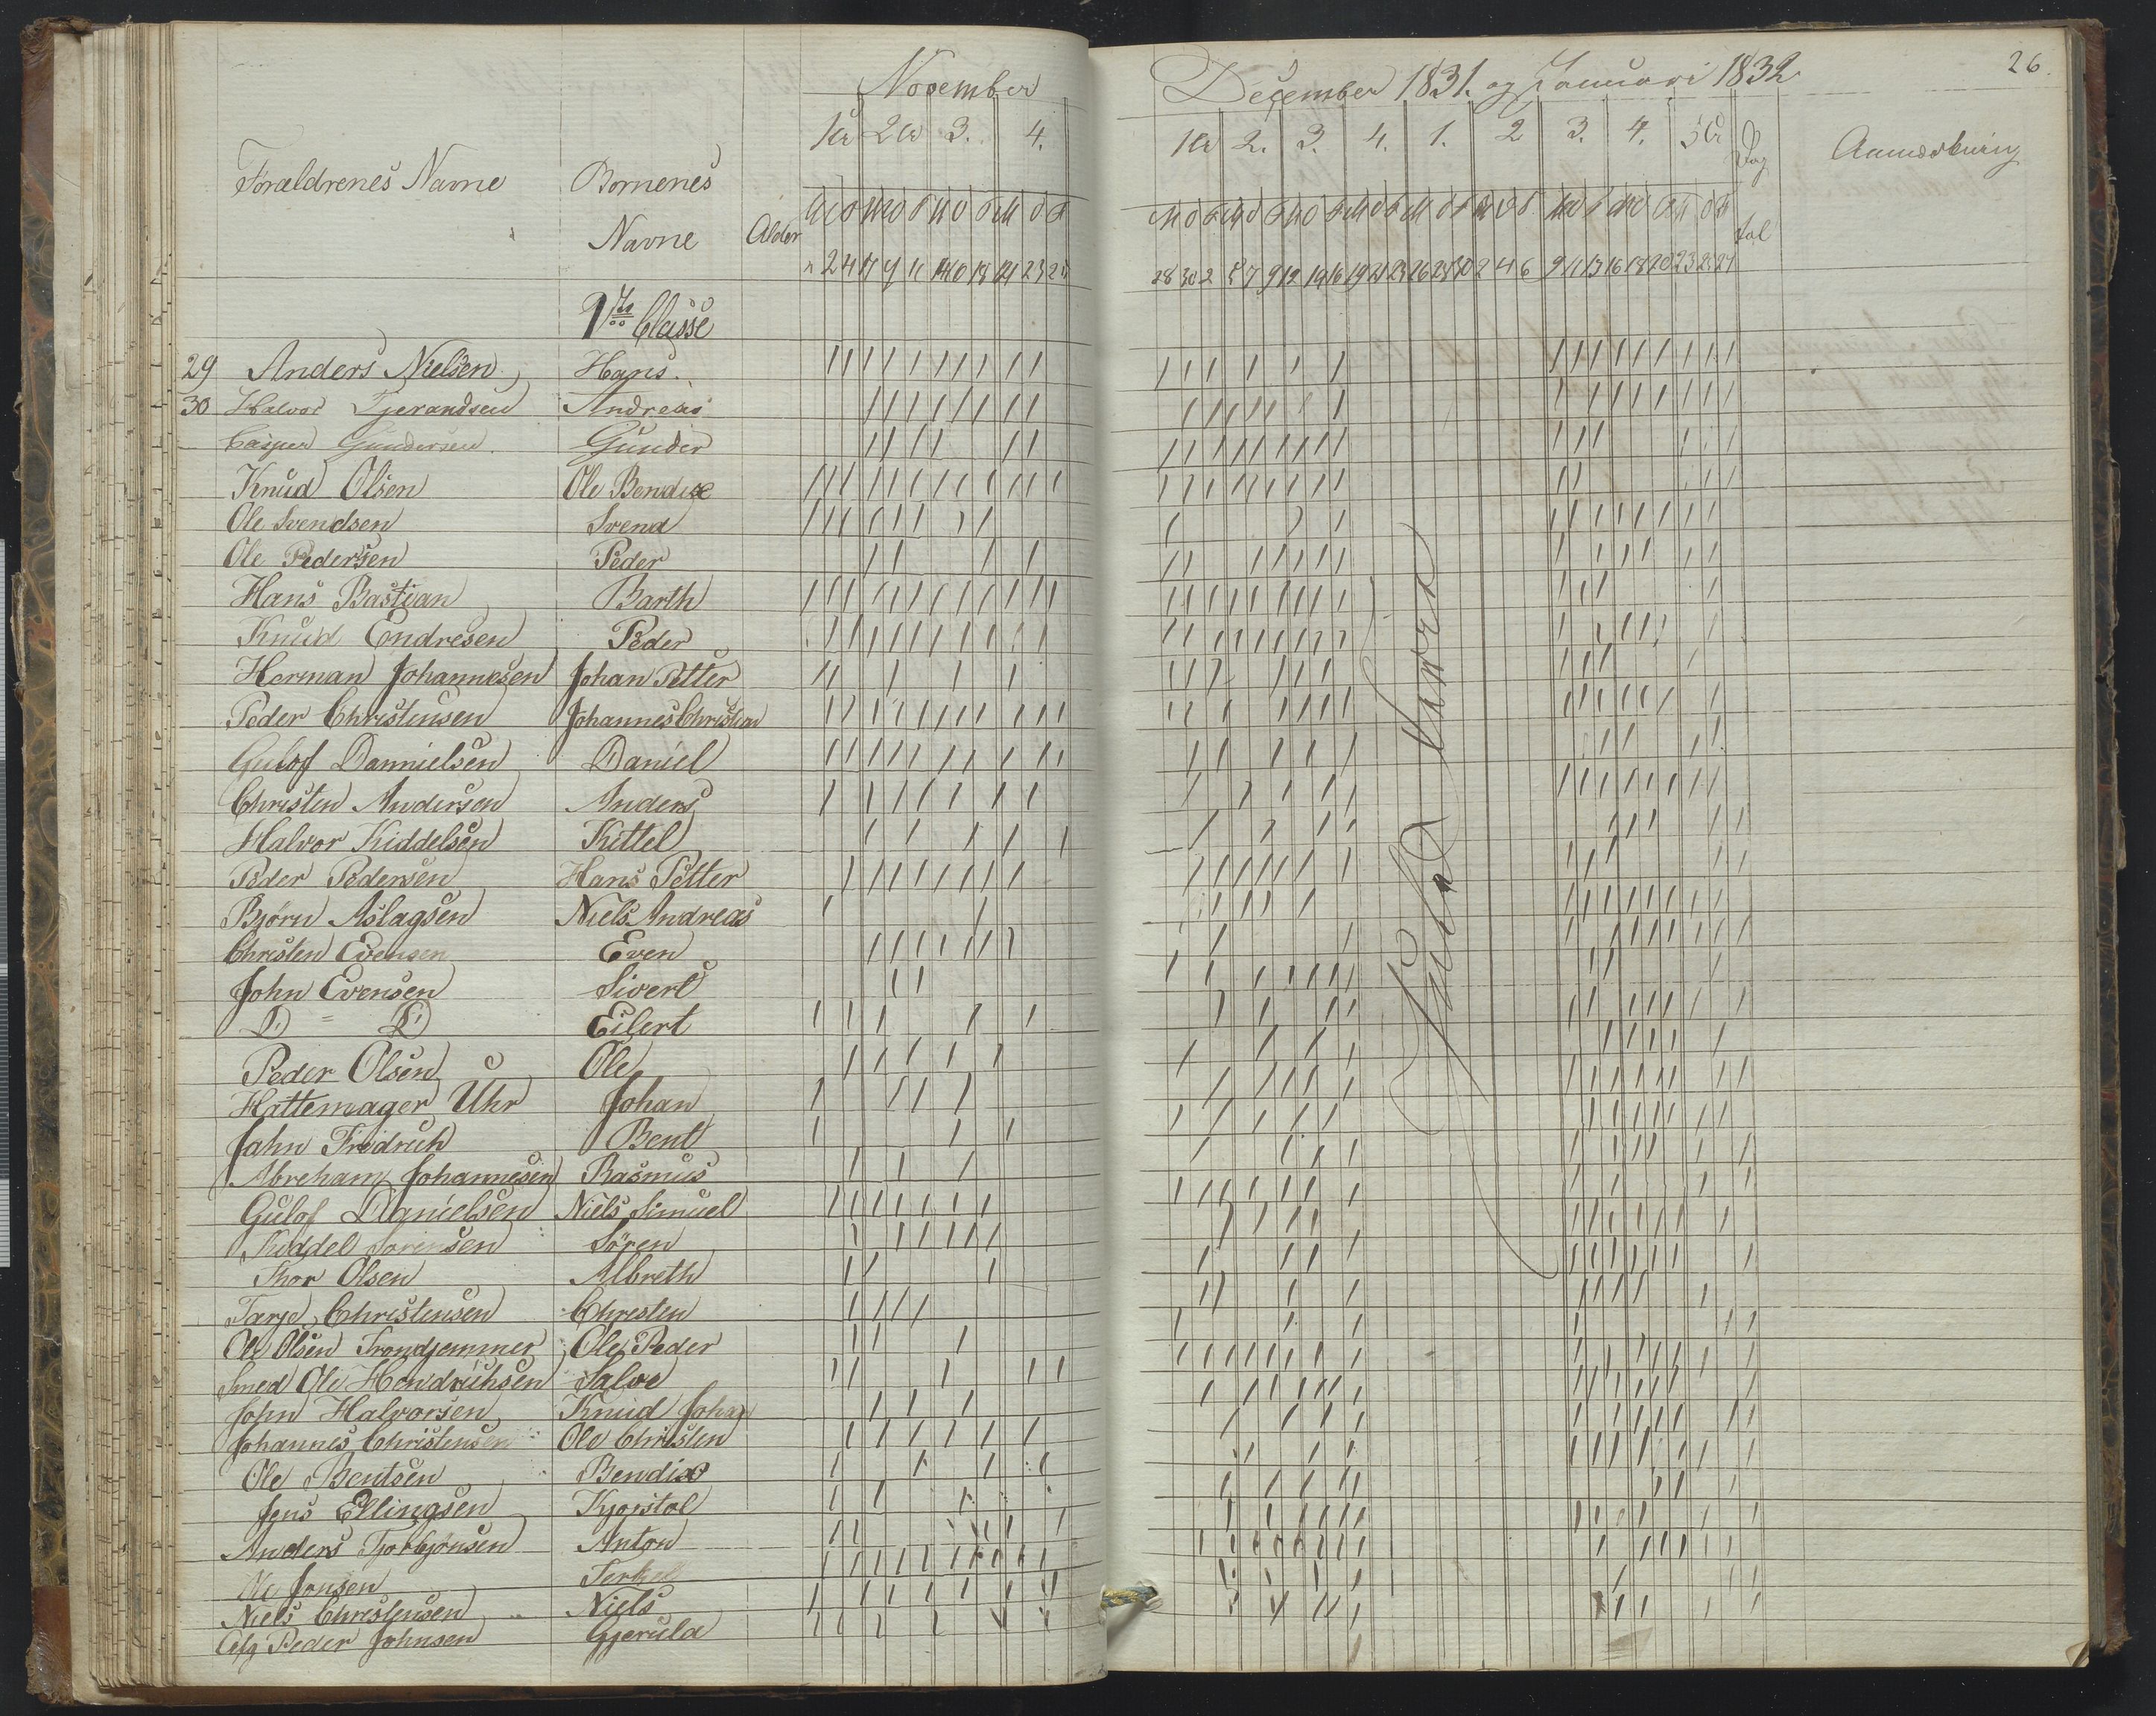 November
December 1831. og Januari 1832
26.
1ste 2de 3. 4.
1ste 2. 3. 4. 1. 2 3. 4. 5te
Forældrenes Navne
Börnenes
Navne
Alder
Dag
tal
Anmærkning
28 30 2 5 7 9 12 14 16 19 21 23 26 28 30 2 4 6 9 11 13 16 18 20 23 25 27
1ste Classe
29 Anders Nielsen Hans
30 Halvor Tjerandsen Andreas
Casper Gundersen Gunder
Knud Olsen Ole Bendixe
Ole Svendsen Svend
Ole Pedersen Peder
Hans Bastian Barth
Knud Endresen Peder
Herman Johannesen Johan Petter
Peder Christensen Johannes Christian
Gulof Dannielsen Daniel
Christen Andersen Anders
Halvor Kiddelsen Kittel
Peder Pedersen Hans Petter
Bjørn Aslagsen Niels Andreas
Christen Evensen Even
John Evensen Sivert
D = D Eilert
Peder Olsen Ole
Hattemager Uhr Johan
Jahn Fredrich Bent
Abreham Johannesen Rasmus
Gulof Danielsen Niels Simuel
Kiddel Sørensen Sören
Thor Olsen Albreth
Tarje Christensen Christen
Ole Olsen Trondjemmer Ole Peder
Smed Ole Hendrichsen Salve
John Halvorsen Knud Johan
Johannes Christensen Ole Christen
Ole Bentsen Bendix
Jens Ellingsen Kjøstol
Anders Torbjönsen Anton
Ole Jonsen Terkel
Niels Christensen Niels
Peder Johnsen Gjeruld
Jule